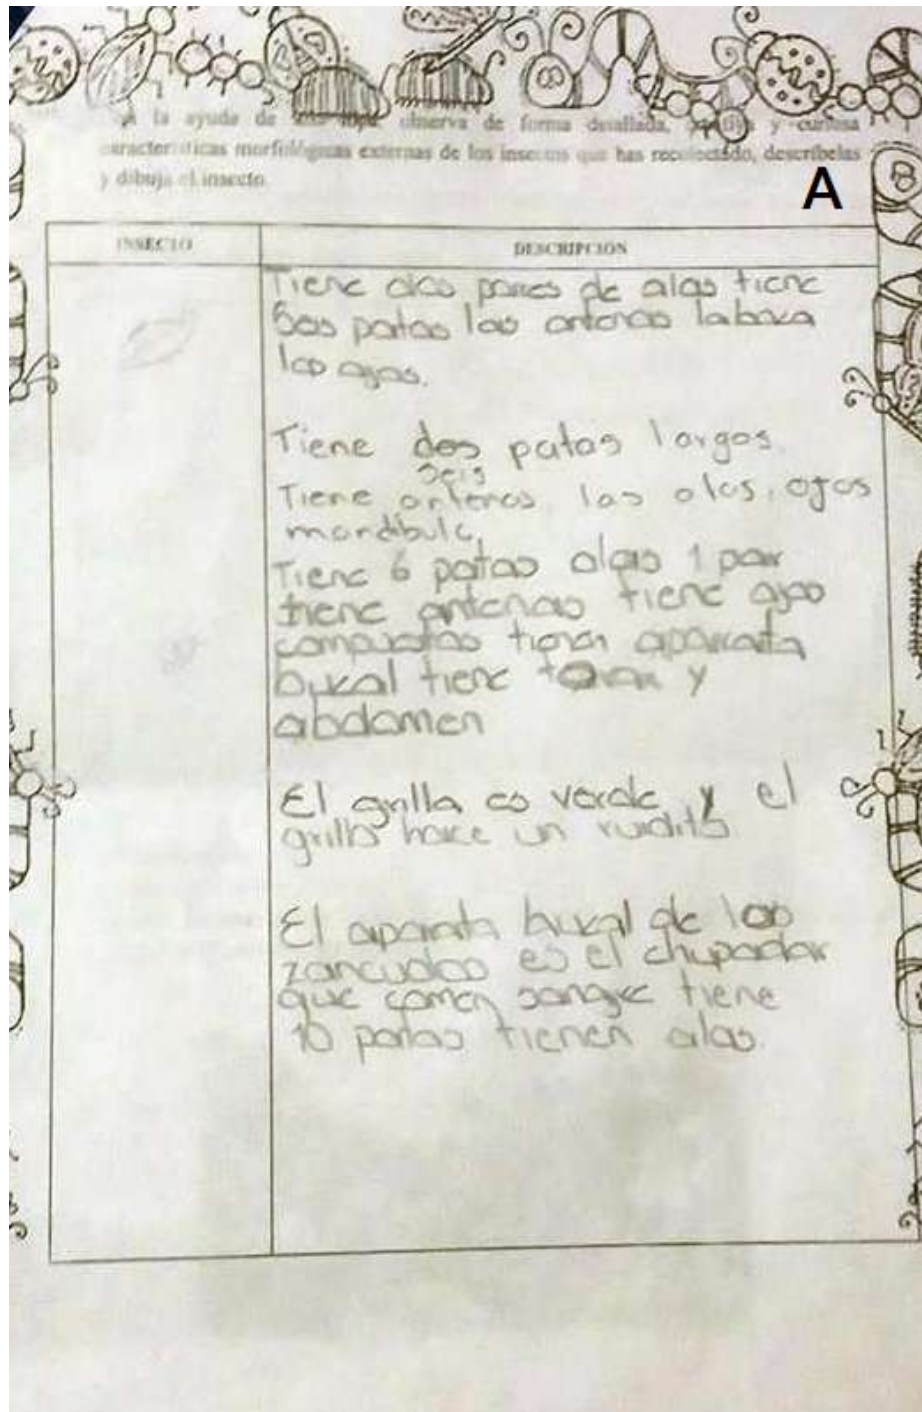 la ayuda de observa de forma detallada, y curiosa
características morfológicas externas de los insectos que has recolectado, descríbelas
y dibuja el insecto.
A
INSECTO
DESCRIPCION
Tiene dos pares de alas tiene
seis patas las antenas la boca
los ojos.
Tiene dos patas largas.
seis
Tiene antenas, las alas, ojos
mandibula,
Tiene 6 patas alas 1 par
tiene antenas tiene ojos
compuestos tienen aparato
bukal tiene torax y
abdomen
El grillo es verde y el
grillo hace un ruidito.
El aparato bukal de los
zancudos es el chupador
que comen sangre tiene
10 patas tienen alas.